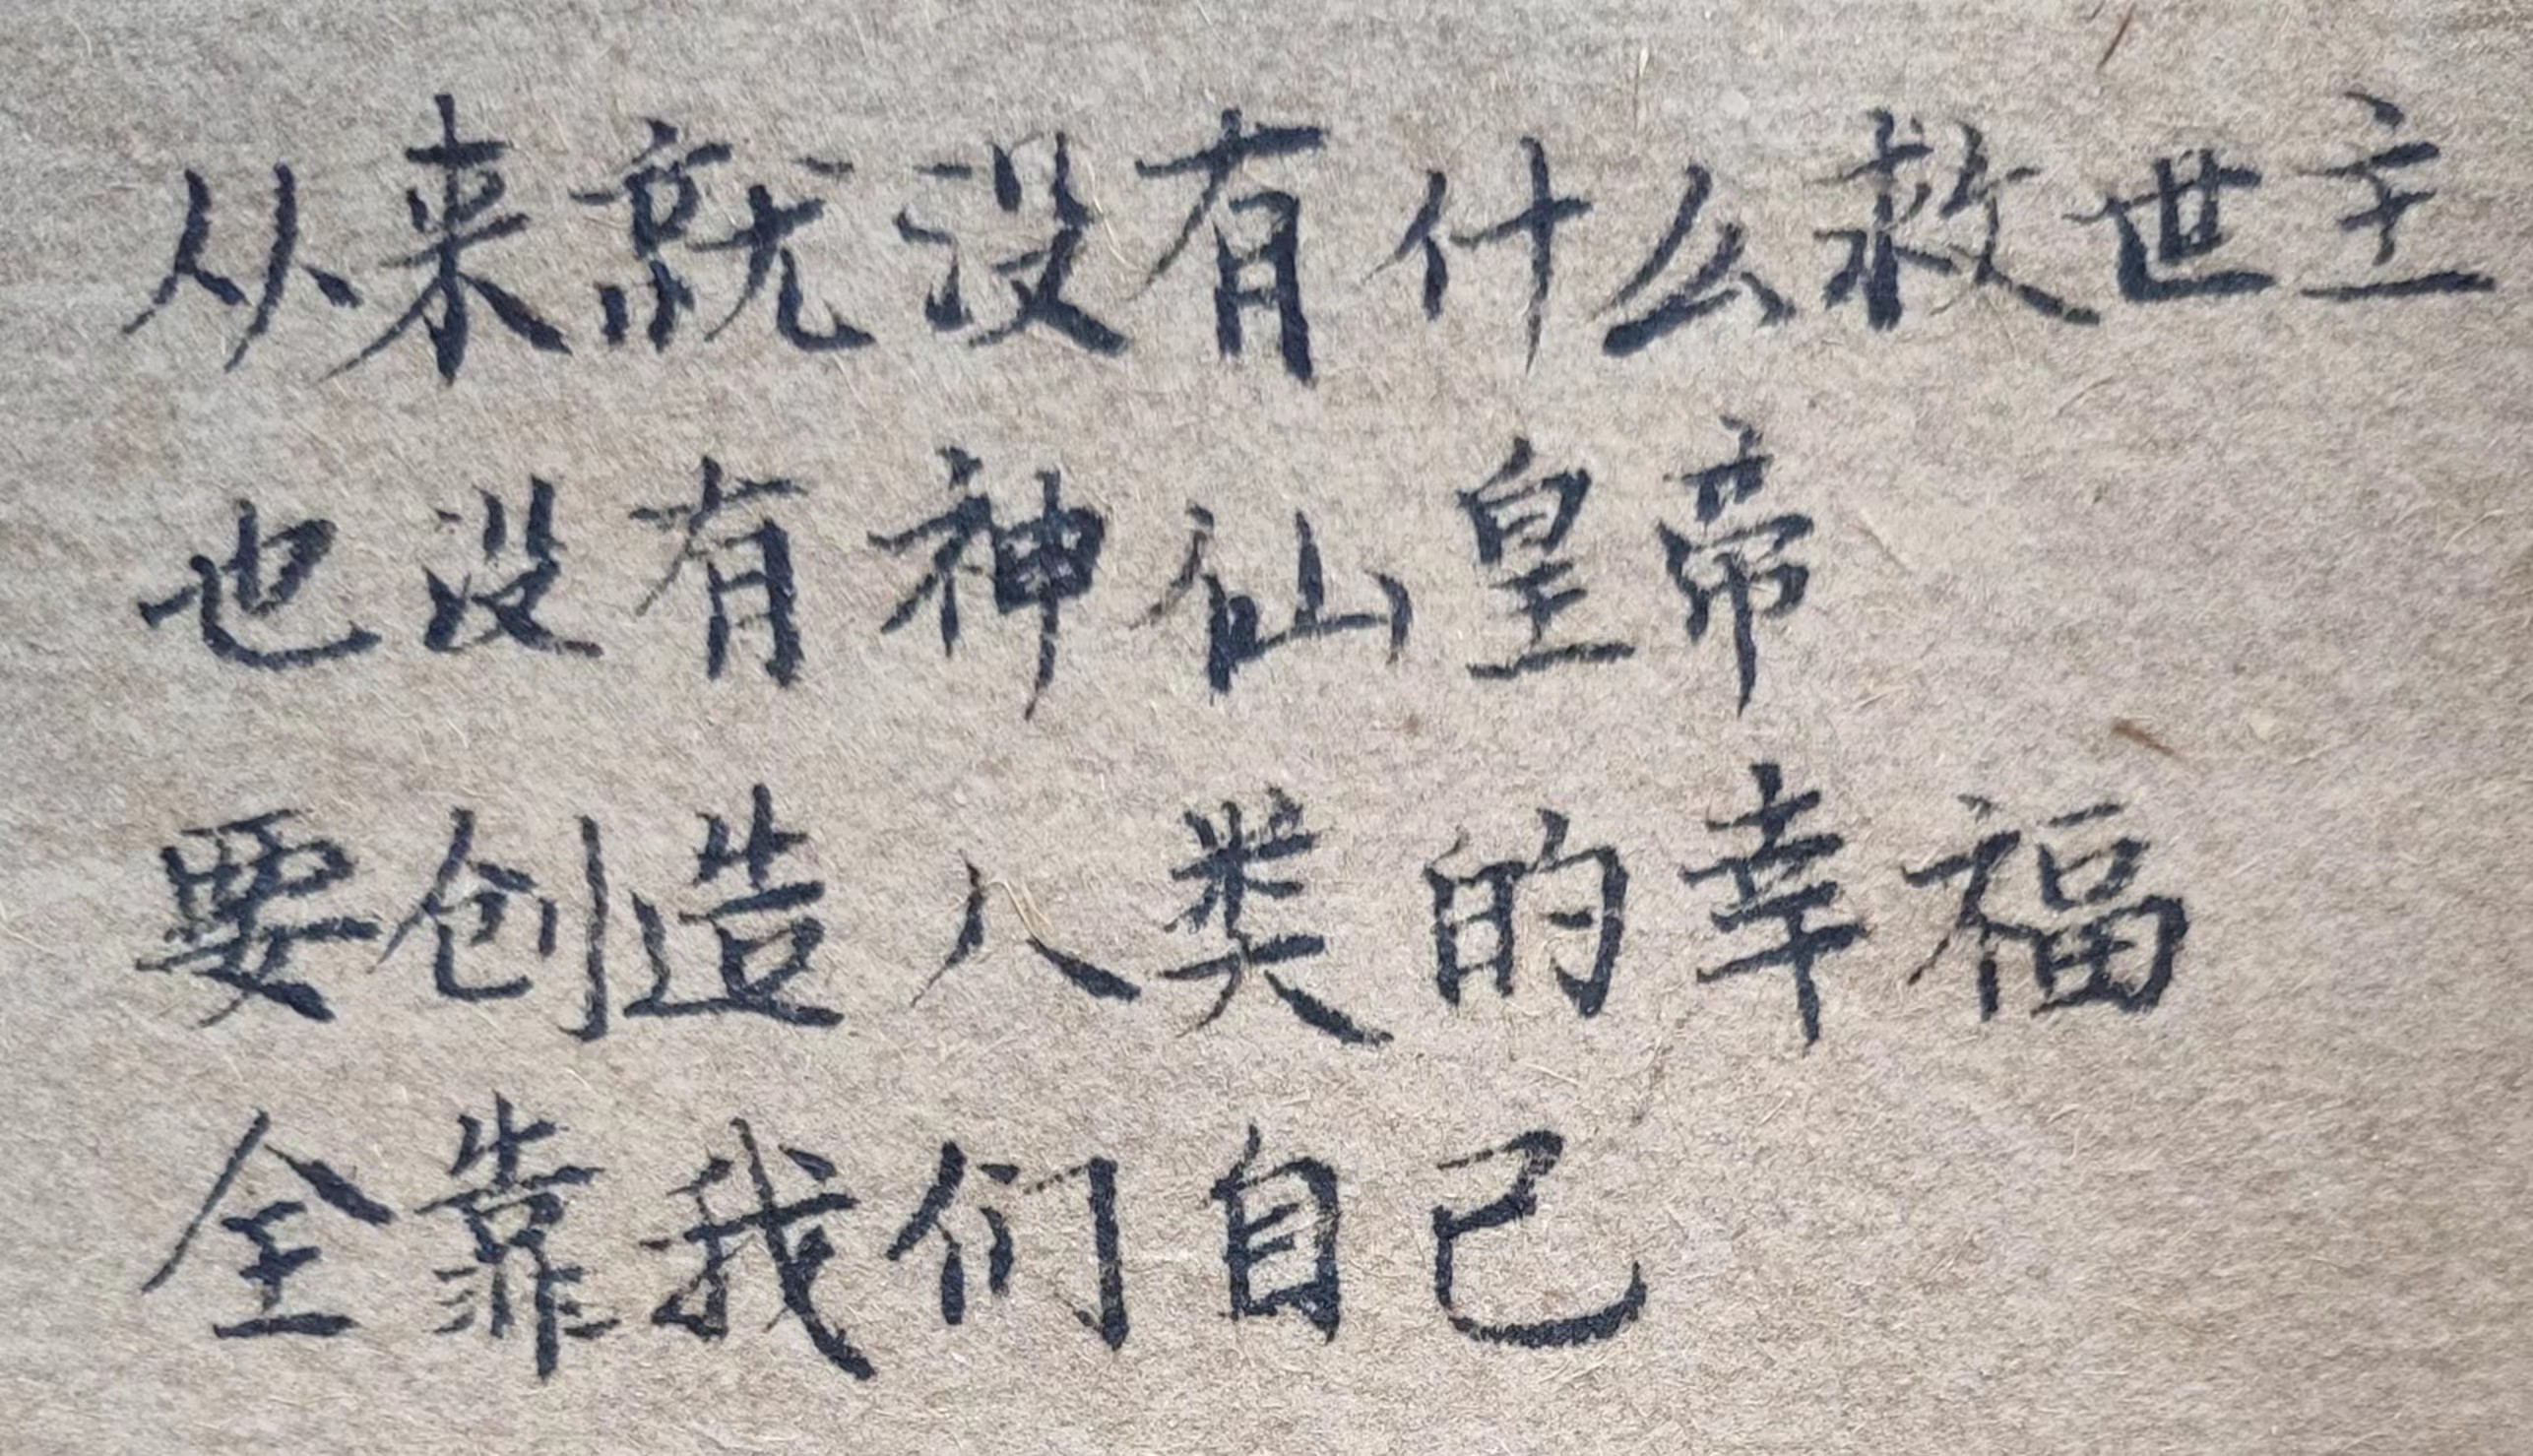 从来就没有什么救世主
也没有神仙皇帝
要创造人类的幸福
全靠我们自己